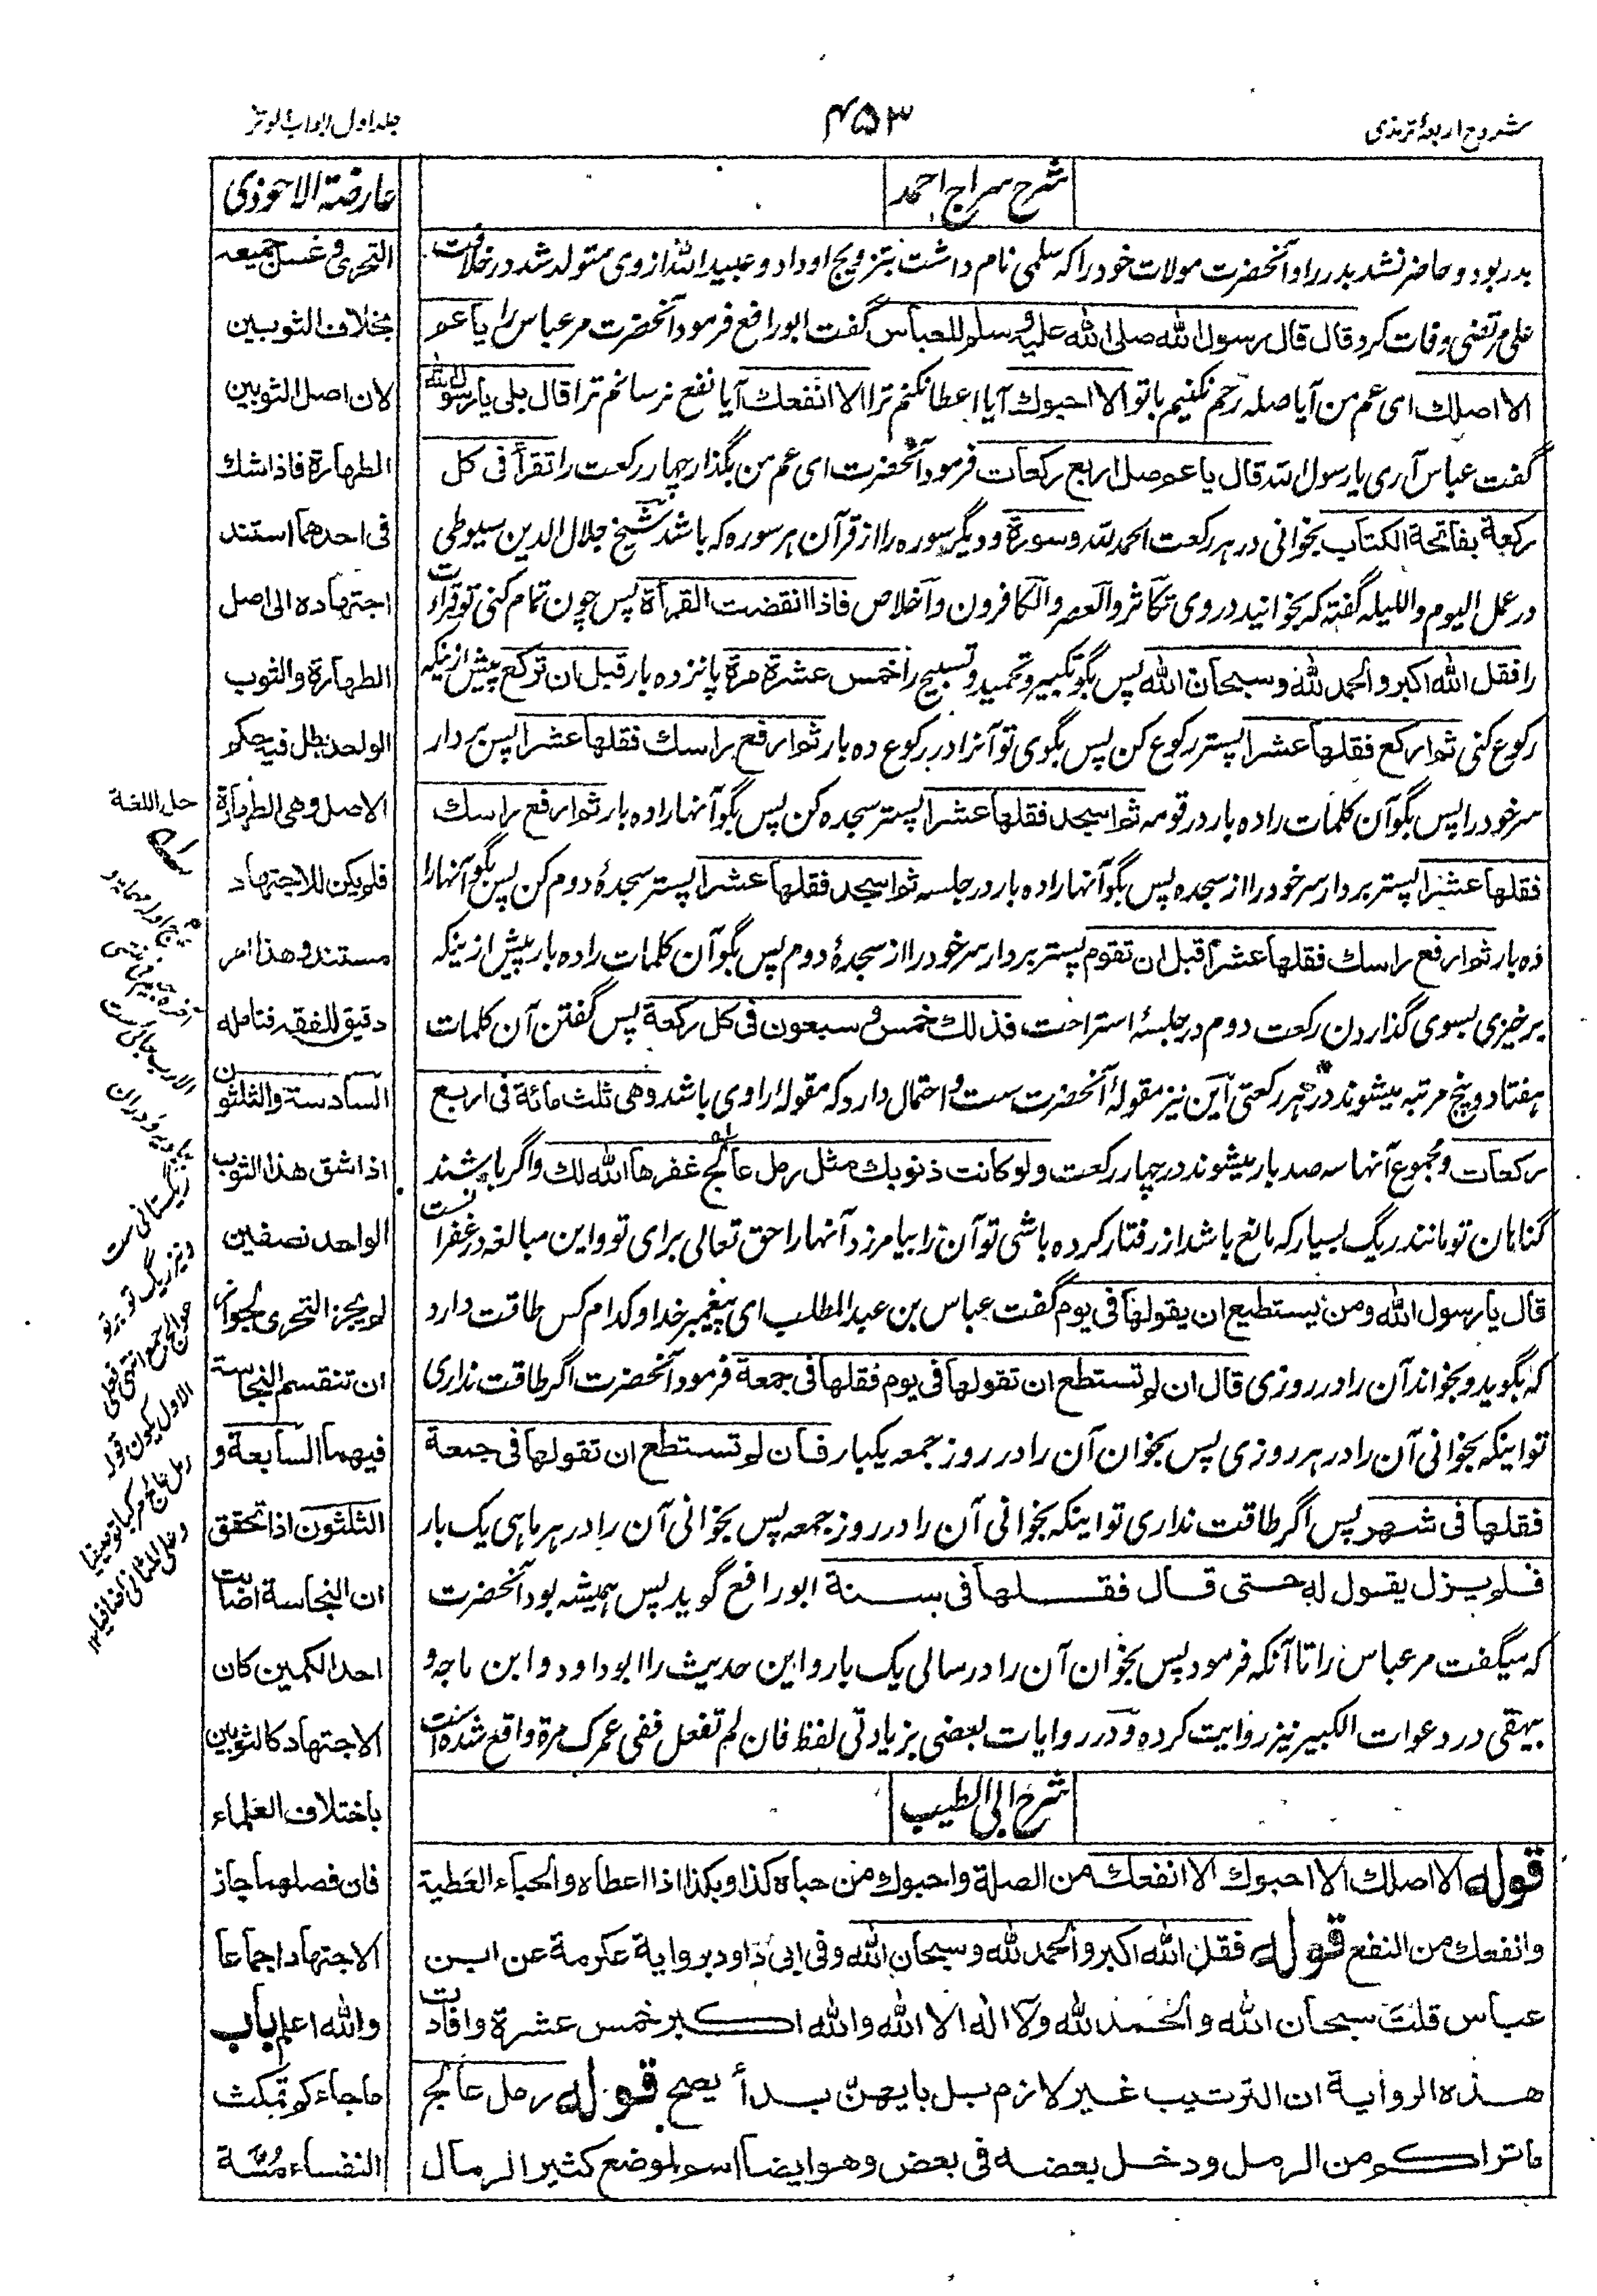 شروح اربعۂ ترمذی
۴۵۳
جلد اول ابواب الوتر
شرح سراج احمد
بدر بود و حاضر نشد بدر را و آنحضرت مولات خود را که سلمی نام داشت بتزویج او داد و عبید الله از وی متولد شد در خلافت
علی مرتضی وفات کرد قال قال رسول الله صلی الله علیه وسلم للعباس گفت ابو رافع فرمود آنحضرت مر عباس را یا عم
الا اصلك ای عم من آیا صله رحم نکنیم با تو الا احبوك آیا اعطا نکنم ترا الا انفعك آیا نفع نرسانم ترا قال بلی یا رسول الله
گفت عباس آری یا رسول الله قال یا عم صل اربع رکعات فرمود آنحضرت ای عم من بگذار چهار رکعت را تقرأ فی کل
رکعة بفاتحة الکتاب بخوانی در هر رکعت الحمد لله وسورة و دیگر سوره را از قرآن هر سوره که باشد شیخ جلال الدین سیوطی
در عمل الیوم واللیله گفته که بخوانید در وی تکاثر والعصر والکافرون واخلاص فاذا انقضت القرأة پس چون تمام کنی تو قراءت
را فقل الله اکبر والحمد لله وسبحان الله پس بگو تکبیر و تحمید و تسبیح را خمس عشرة مرة پانزده بار قبل ان ترکع پیش ازینکه
رکوع کنی ثم ارکع فقلها عشرا پستر رکوع کن پس بگوی تو آنرا در رکوع ده بار ثم ارفع راسك فقلها عشرا پس بردار
سر خود را پس بگو آن کلمات را ده بار در قومه ثم اسجد فقلها عشرا پستر سجده کن پس بگو آنها را ده بار ثم ارفع راسك
فقلها عشرا پستر بردار سر خود را از سجده پس بگو آنها را ده بار در جلسه ثم اسجد فقلها عشرا پستر سجدۀ دوم کن پس بگو آنها را
ده بار ثم ارفع راسك فقلها عشرا قبل ان تقوم پستر بردار سر خود را از سجدۀ دوم پس بگو آن کلمات را ده بار پیش ازینکه
برخیزی بسوی گذاردن رکعت دوم در جلسۂ استراحت فذلك خمس و سبعون فی کل رکعة پس گفتن آن کلمات
هفتاد و پنج مرتبه میشوند در هر رکعتی این نیز مقولۂ آنحضرت ست و احتمال دارد که مقولۂ راوی باشد وهی ثلث مائة فی اربع
رکعات و مجموع آنها سه صد بار میشوند در چهار رکعت ولو کانت ذنوبك مثل رمل عالج غفرها الله لك و اگر باشند
گناهان تو مانند ریگ بسیار که مانع باشد از رفتار کرده باشی تو آن را بیامرزد آنها را حق تعالی برای تو و این مبالغه در غفرانست
قال یا رسول الله ومن یستطیع ان یقولها فی یوم گفت عباس بن عبد المطلب ای پیغمبر خدا و کدام کس طاقت دارد
که بگوید و بخواند آن را در روزی قال ان لم تستطع ان تقولها فی یوم فقلها فی جمعة فرمود آنحضرت اگر طاقت نداری
تو اینکه بخوانی آن را در هر روزی پس بخوان آن را در روز جمعه یکبار فان لم تستطع ان تقولها فی جمعة
فقلها فی شهر پس اگر طاقت نداری تو اینکه بخوانی آن را در روز جمعه پس بخوانی آن را در هر ماهی یک بار
فلم یزل یقول له حتی قال فقلها فی سنة ابو رافع گوید پس همیشه بود آنحضرت
که میگفت مر عباس را تا آنکه فرمود پس بخوان آن را در سالی یک بار و این حدیث را ابو داود و ابن ماجه و
بیهقی در دعوات الکبیر نیز روایت کرده و در روایات بعضی بزیادتی لفظ فان لم تفعل ففی عمرك مرة واقع شده است
شرح ابی الطیب
قوله الا اصلك الا احبوك الا انفعك من الصلة واحبوك من حباه کذا وبکذا اذا اعطاه والحباء العطیة
وانفعك من النفع قوله فقل الله اکبر والحمد لله وسبحان الله وفی ابی داود بروایة عکرمة عن ابن
عباس قلت سبحان الله والحمد لله ولا اله الا الله والله اکبر خمس عشرة وافادت
هذه الروایة ان الترتیب غیر لازم بل بایهن بدأ یصح قوله رمل عالج
ما تراکم من الرمل ودخل بعضه فی بعض وهو ایضا اسم لموضع کثیر الرمال
عارضة الاحوذی
التحری فی غسل جمیعه
بخلاف الثوبین
لان اصل الثوبین
الطهارة فاذا شك
فی احدهما استند
اجتهاده الی اصل
الطهارة والثوب
الواحد بطل فیه حکم
الاصل وهی الطهارة
فلم یکن للاجتهاد
مستند وهذا امر
دقیق للفقه فتامله
السادسة والثلثون
اذا شق هذا الثوب
الواحد نصفین
لم یجز التحری لجواز
ان تنقسم النجاسة
فیهما السابعة و
الثلثون اذا تحقق
ان النجاسة اصابت
احد الکمین کان
الاجتهاد کالثوبین
باختلاف العلماء
فان فصلهما جاز
الاجتهاد اجماعا
والله اعلم باب
ما جاء کم تمکث
النفساء مسئلة
حل اللغة